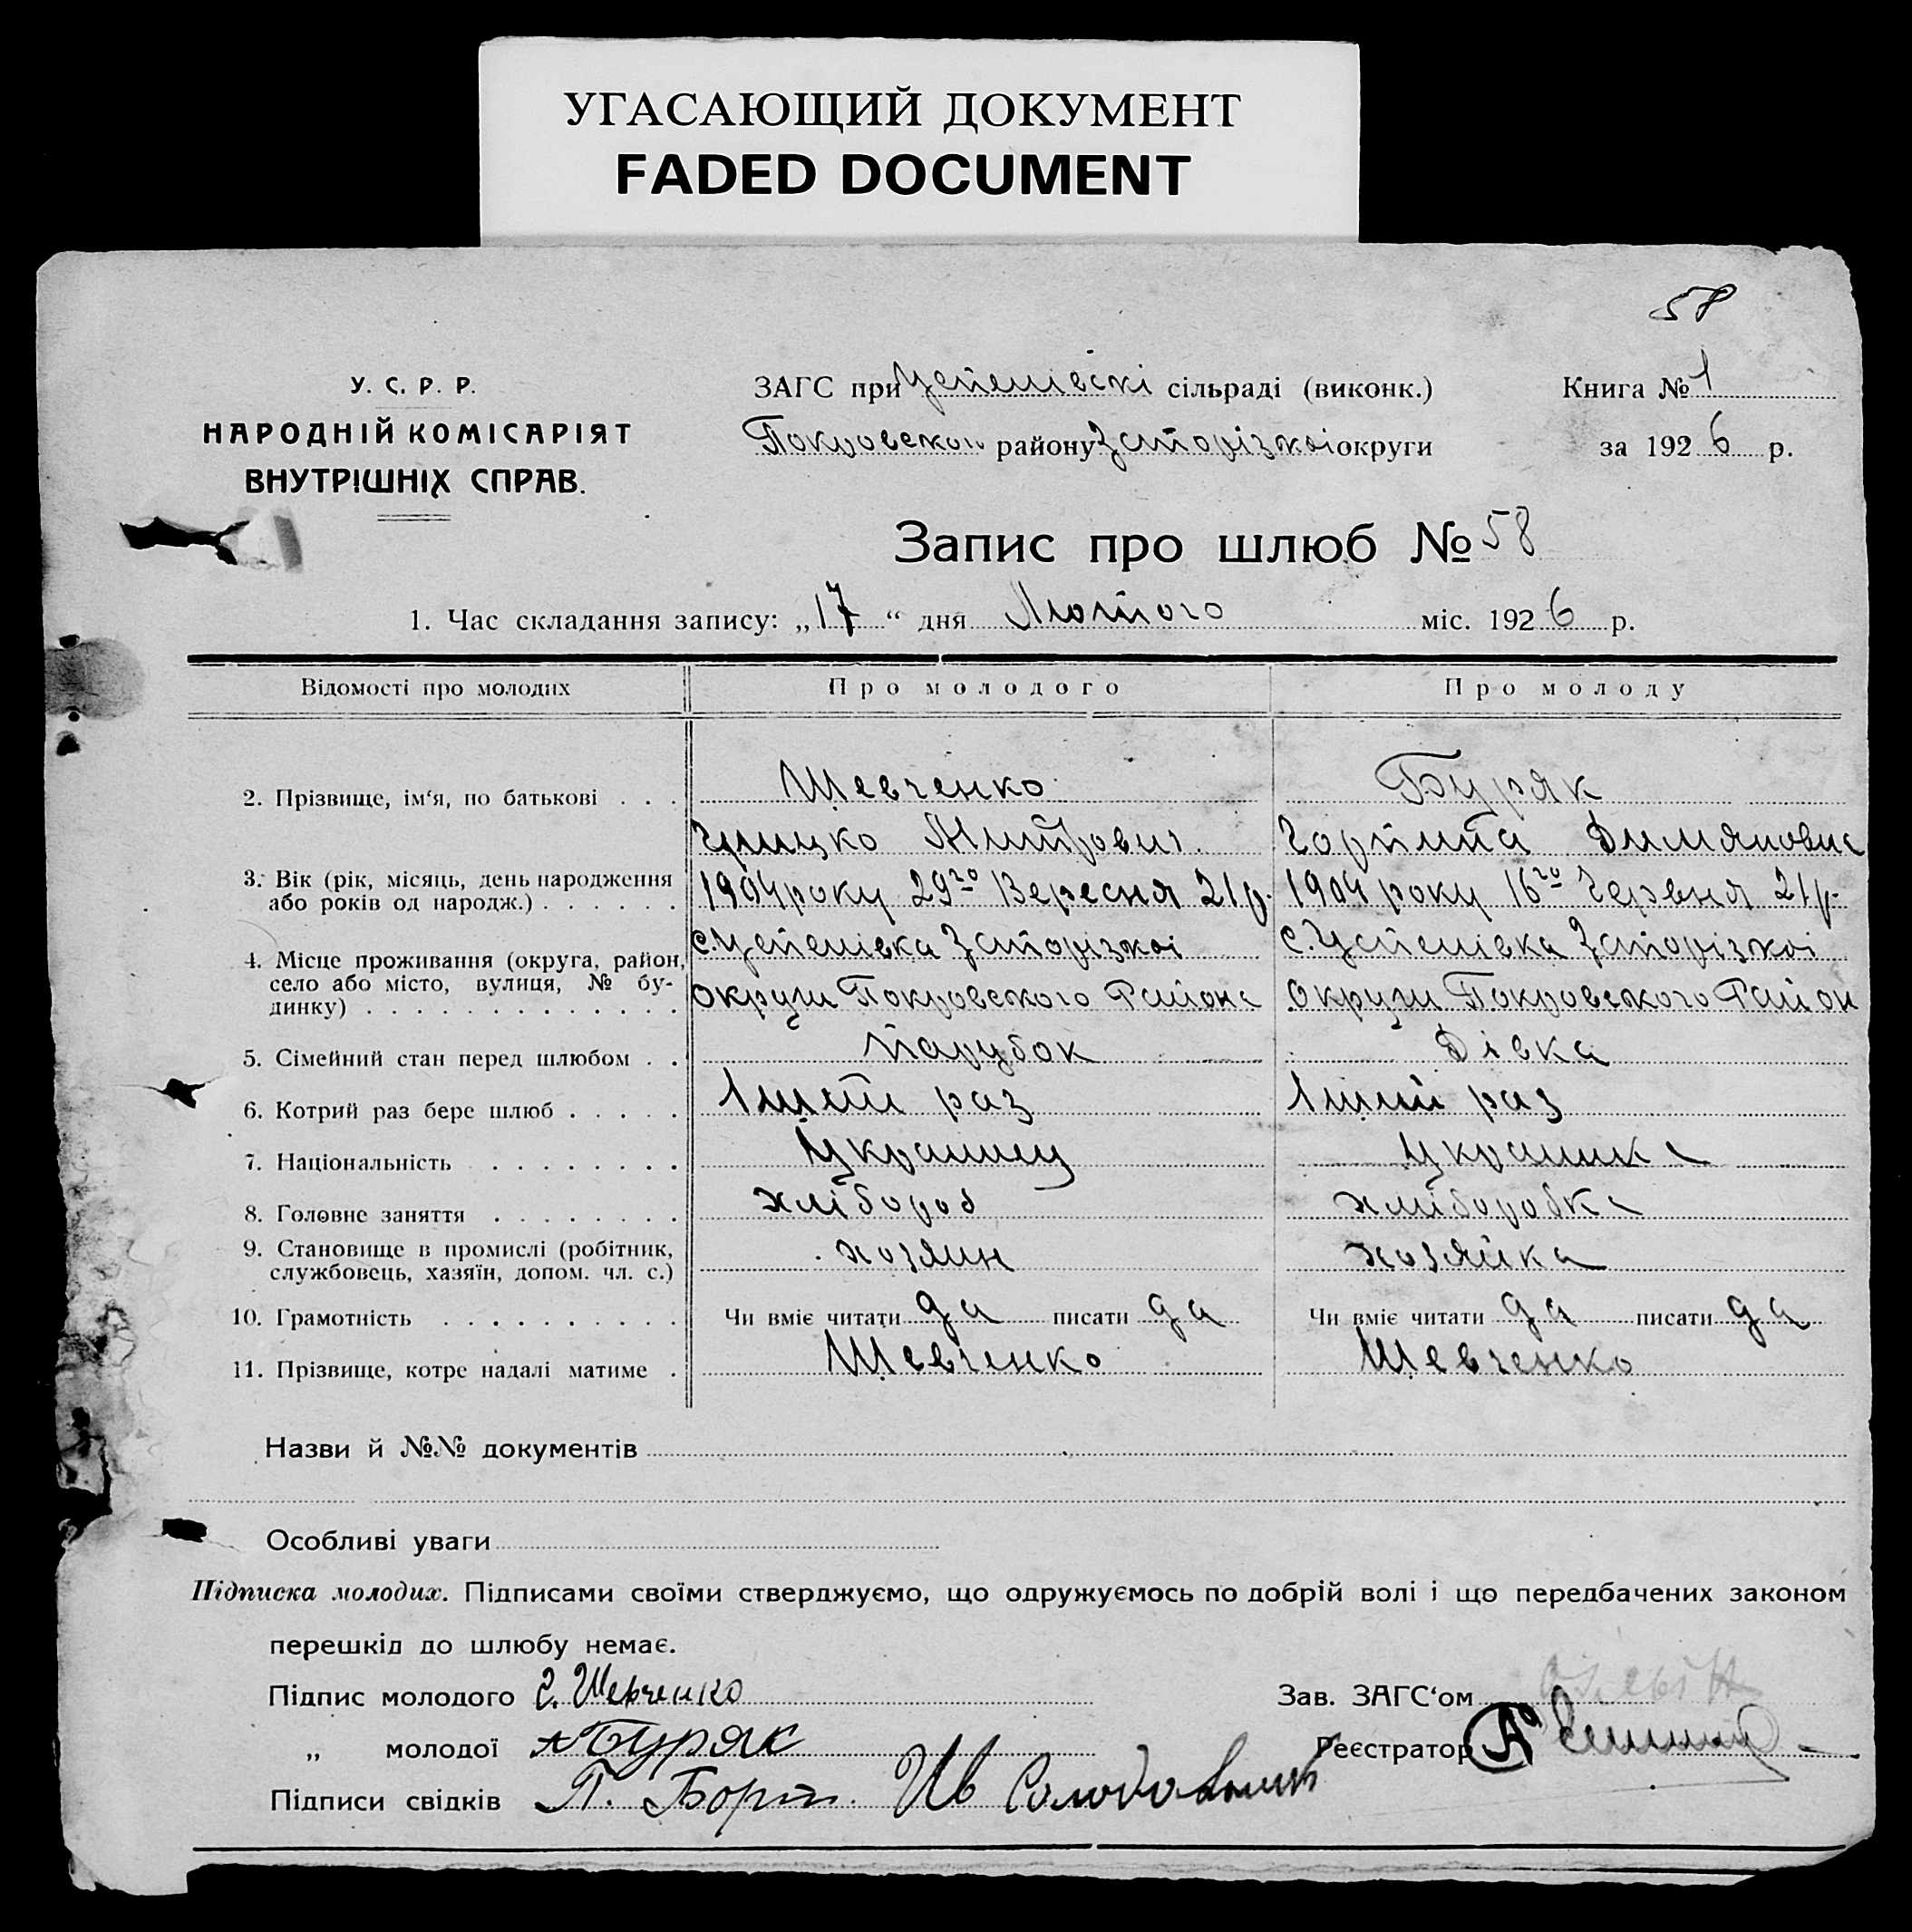 УГАСАЮЩИЙ ДОКУМЕНТ
FADED DOCUMENT
58
У. С. Р. Р.
НАРОДНІЙ КОМІСАРІЯТ
ВНУТРІШНІХ СПРАВ.
ЗАГС при Успенівскі сільраді (виконк.)
Покровского району Запорізкоі округи
Книга № 1
за 1926 р.
Запис про шлюб № 58
1. Час складання запису: „17“ дня Лютого міс. 1926 р.
Відомості про молодих Про молодого Про молоду
2. Прізвище, ім‘я, по батькові . . . Шевченко Буряк
Грицко Митрович. Горпина
3. Вік (рік, місяць, день народження
або років од народж.) . . . . . . 1904 року 29го Вересня 21 р. 1904 року 16го Червня 21 р.
с. Успенівка Запорізкоі с. Успенівка Запорізкоі
4. Місце проживання (округа, район,
село або місто, вулиця, № бу-
динку) . . . . . . . . . . . . . округи Покровского Района округи Покровского Район
5. Сімейний стан перед шлюбом . . Парубок Дівка
6. Котрий раз бере шлюб . . . . . раз раз
7. Національність . . . . . . . . Украинец Украинка
8. Головне заняття . . . . . . . . хлібороб хліборобка
9. Становище в промислі (робітник,
службовець, хазяїн, допом. чл. с.) хозяин хозяйка
10. Грамотність . . . . . . . . . . Чи вміє читати да писати да Чи вміє читати да писати да
11. Прізвище, котре надалі матиме . Шевченко Шевченко
Назви й №№ документів
Особливі уваги
Підписка молодих. Підписами своїми стверджуємо, що одружуємось по добрій волі і що передбачених законом
перешкід до шлюбу немає.
Підпис молодого Г. Шевченко
Зав. ЗАГС‘ом
„ молодої Буряк
Реєстратор
Підписи свідків П. Борт. Ив